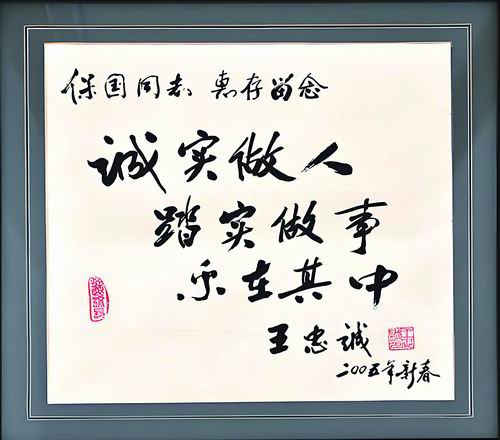 保国同志 惠存留念
诚实做人
踏实做事
乐在其中
王忠诚
2005年新春